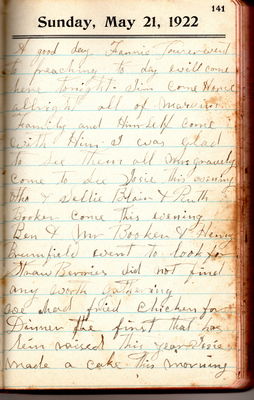 141
Sunday, May 21, 1922
A good day Fannie went
to preaching to day will come
here tonight. Slim come Home
allright all of
Family and Himself come
with Him I was glad
to see them all Mrs Gravely
come to see Josie this evening
Otho & Sallie Blair & Ruth
Booker come this evening
Ben & Mr Booker & Henry
Brumfield went to look for
Straw Berries did not find
any worth gathering
we Had fried chicken for
Dinner the first that has
bein raised this year Josie
made a cake this morning